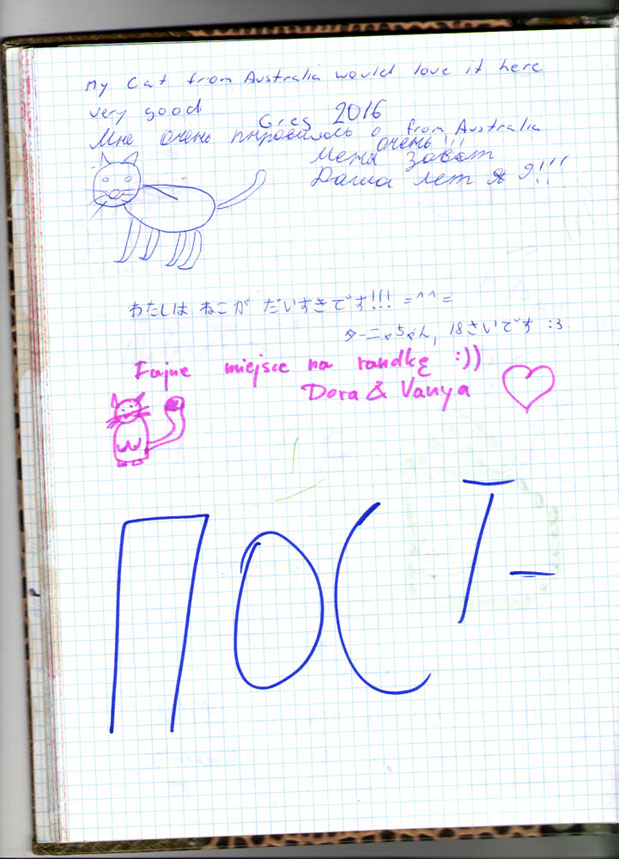 My Cat from Australia would love it here
very good
Greg 2016
from Australia
Мне очень пнравилось
очень!!!
Меня Зовот
Даша лет я 9!!!
わたしは ねこが だいすきです!!! =^^=
ターニャちゃん, 18さいです :3
Fajne miejsce na randkę :))
Dora & Vanya
ПОСТ-